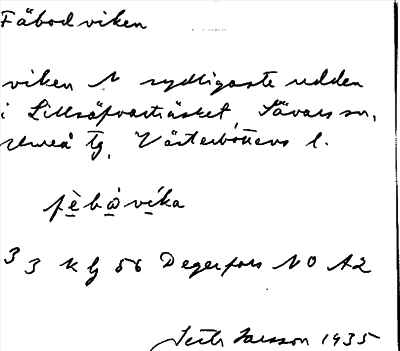 Fäbodviken
viken N sydligaste udden
i Lillsåpvarträsket, Sävars sn,
Umeå tg, Västerbottens l.
fèbὼvika
33 k g 56 Degerfors NO A2
Seth Larsson 1935